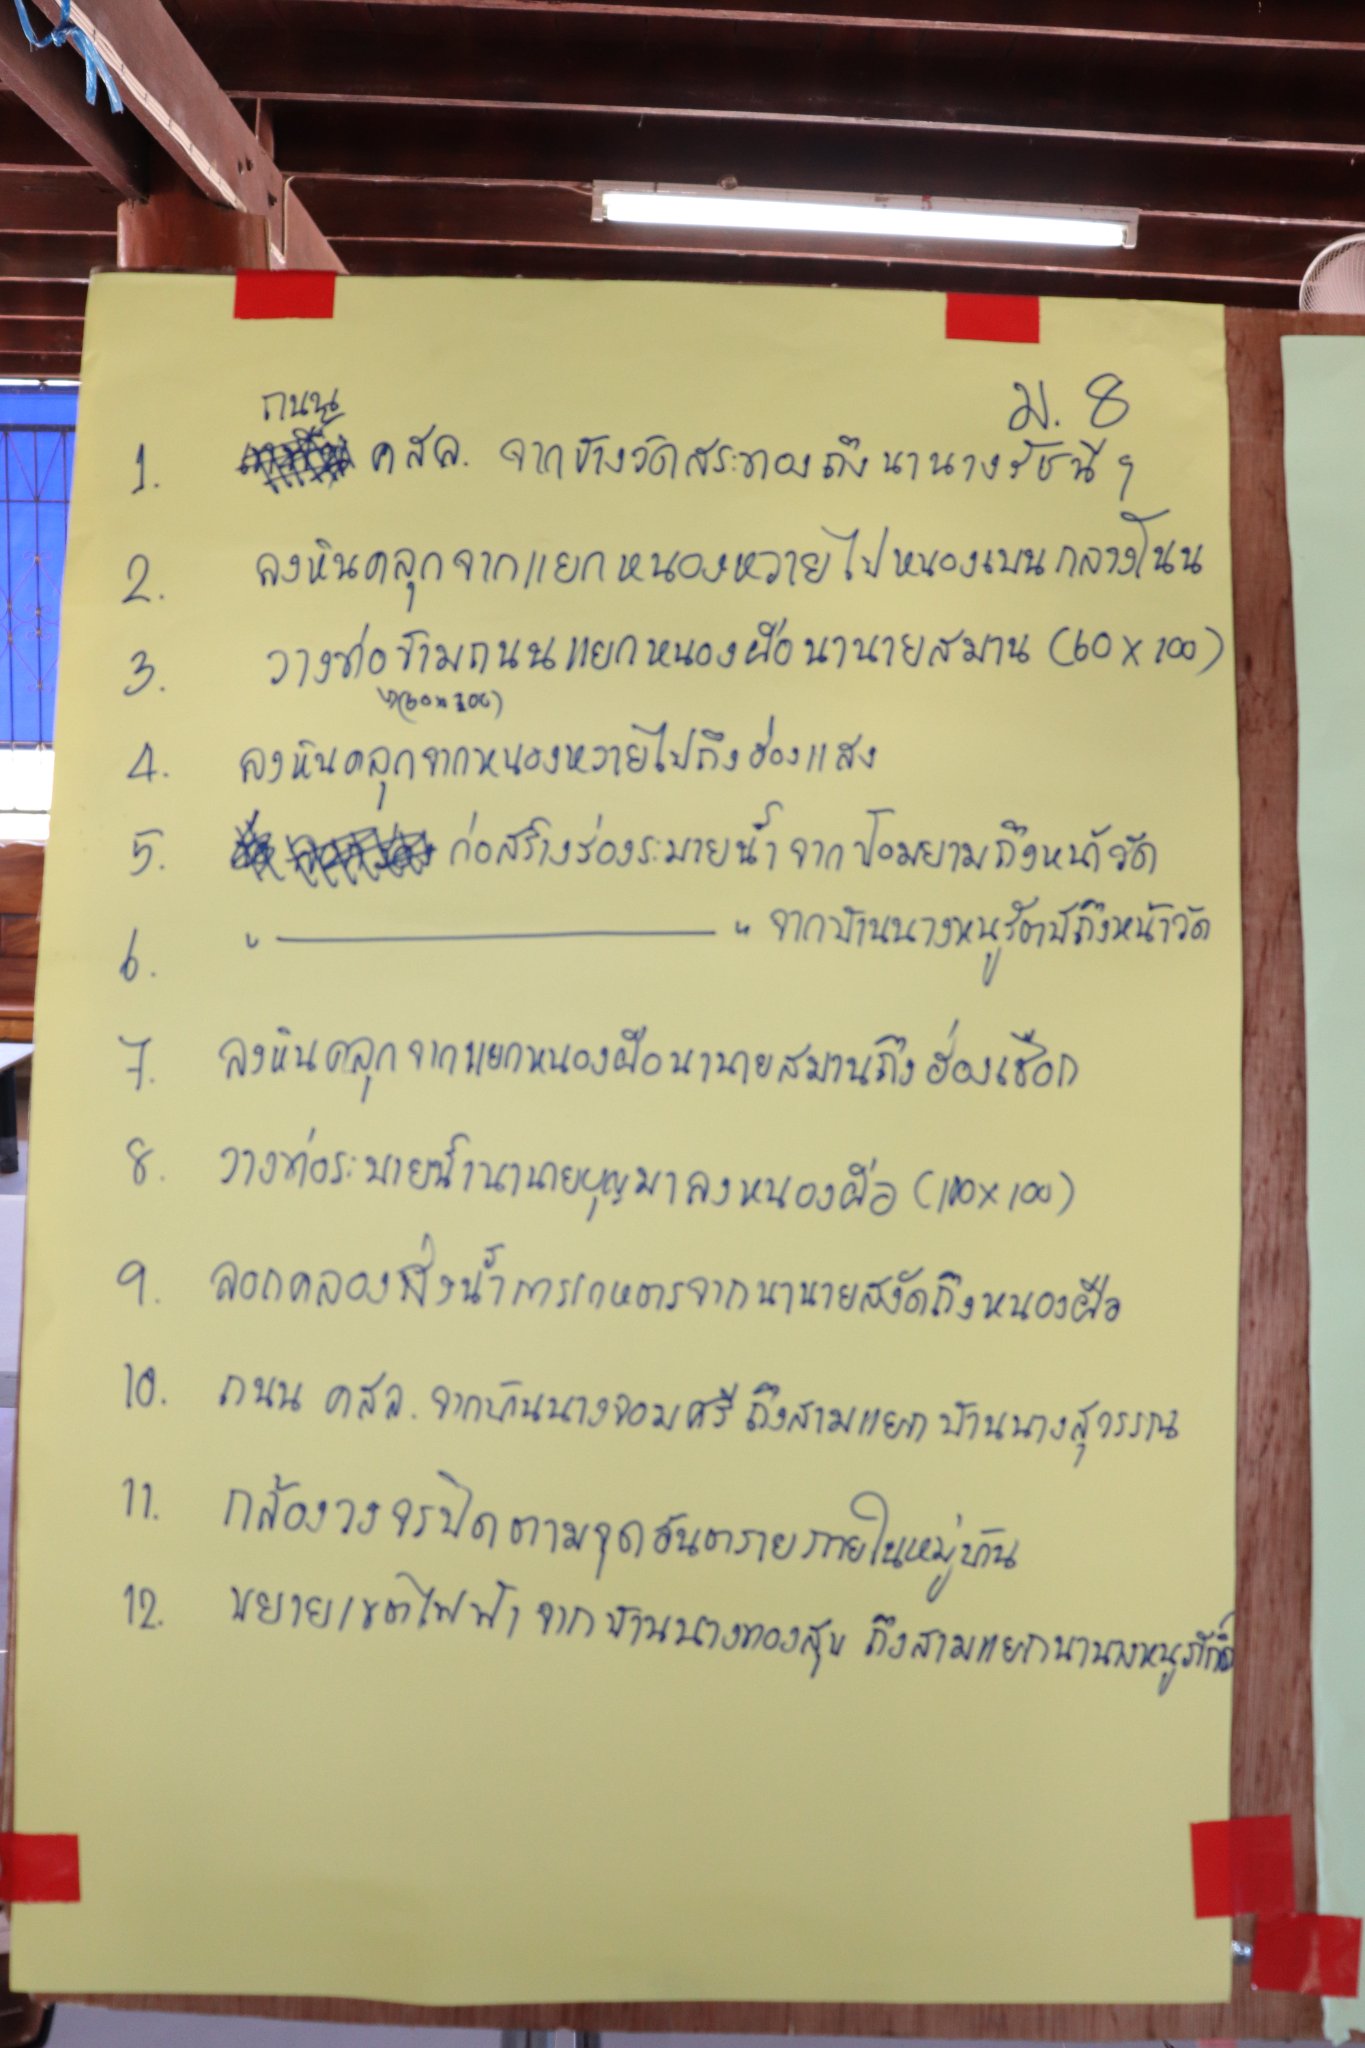 ม. 8
1. ถนน คสล. จากข้างวัดสระทองถึงนานางรัชนีฯ
2. ลงหินคลุกจากแยกหนองหวายไปหนองเบนกลางโนน
3. วางท่อข้ามถนนแยกหนองผือนานายสมาน (60 x 100)
(60 x 100)
4. ลงหินคลุกจากหนองหวายไปถึงฮ่องแสง
5. ก่อสร้างร่องระบายน้ำจากป้อมยามถึงหน้าวัด
6. " ——— " จากบ้านนางหนูรัตน์ถึงหน้าวัด
7. ลงหินคลุกจากแยกหนองผือนานายสมานถึงฮ่องเชือก
8. วางท่อระบายน้ำนานายบุญมาลงหนองผือ (100 x 100)
9. ลอกคลองส่งน้ำการเกษตรจากนานายสงัดถึงหนองผือ
10. ถนน คสล. จากบ้านนางจอมศรี ถึงสามแยกบ้านนางสุวรรณ
11. กล้องวงจรปิดตามจุดอันตรายภายในหมู่บ้าน
12. ขยายเขตไฟฟ้าจากบ้านนางทองสุข ถึงสามแยกนานางหนูภักดิ์